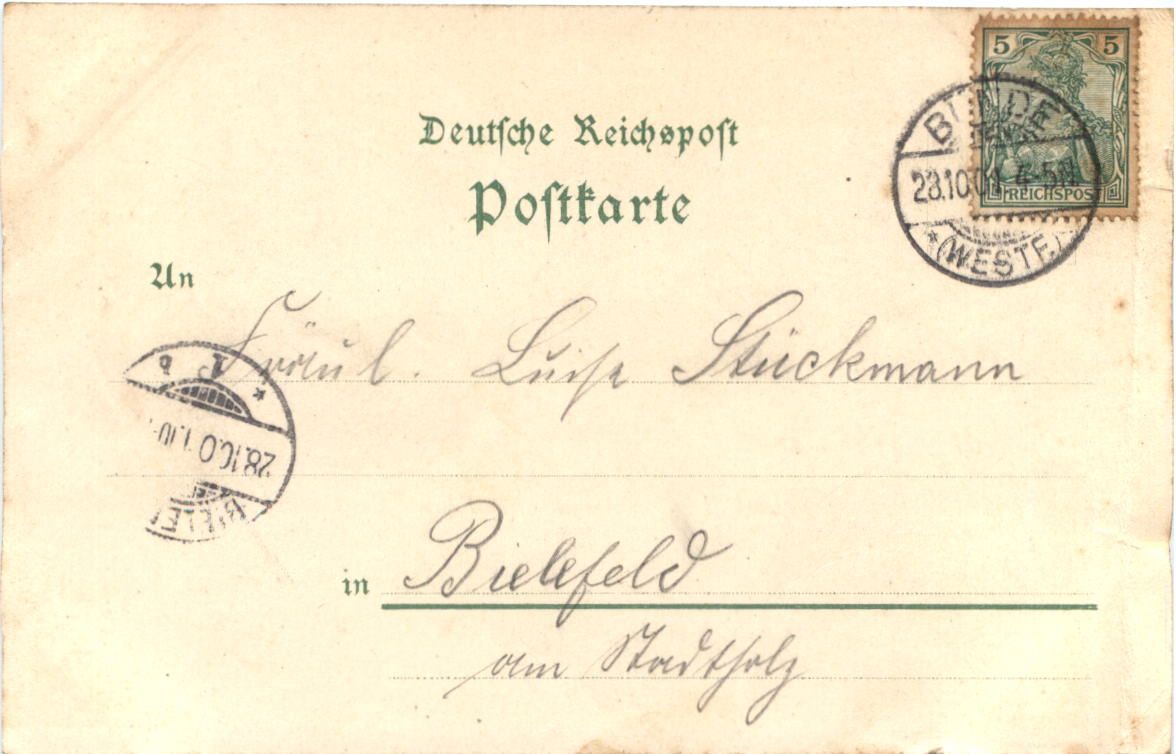 5 5
REICHSPOST
BÜNDE
28.10.01. 4-5N
*(WESTF.)
Deutsche Reichspost
Postkarte
An
Fräul. Luise Stückmann
* 1 b
28.10.01.10-
BIELEF
in Bielefeld
am Stadtholz